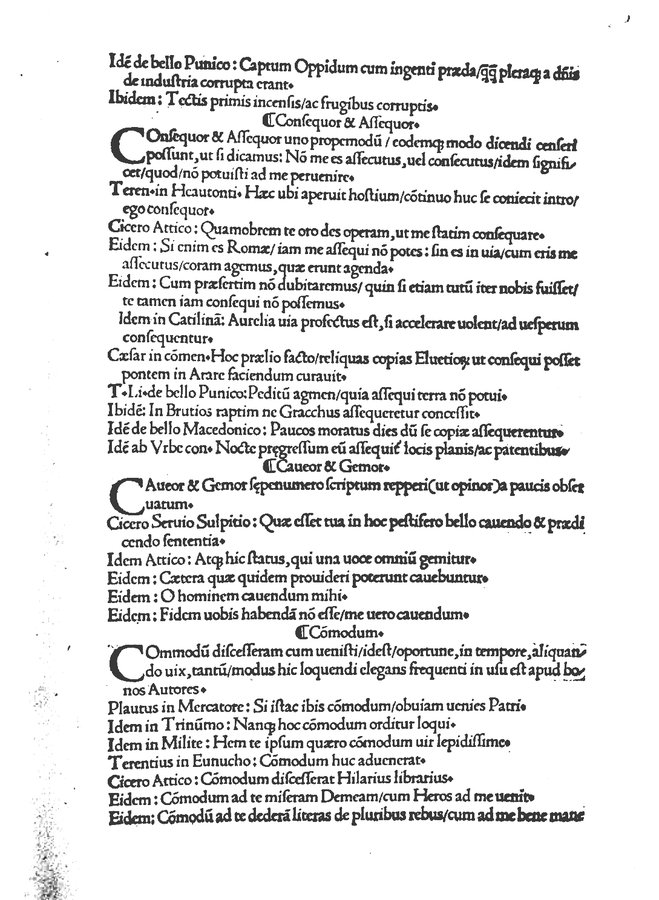 Idē de bello Punico: Captum Oppidum cum ingenti præda/q̄q̄ pleraꝗ a dn̄is
de industria corrupta erant.
Ibidem: Tectis primis incensis/ac frugibus corruptis.
¶Consequor & Assequor.
COnsequor & Assequor uno propemodū / eodemꝗ modo dicendi censeri
possunt, ut si dicamus: Nō me es assecutus, uel consecutus/idem signifi/
cet/quod/nō potuisti ad me peruenire.
Teren.in Heautonti. Hæc ubi aperuit hostium/cōtinuo huc se coniecit intro/
ego consequor.
Cicero Attico: Quamobrem te oro des operam, ut me statim consequare.
Eidem: Si enim es Romæ/ iam me assequi nō potes: sin es in uia/cum eris me
assecutus/coram agemus, quæ erunt agenda.
Eidem: Cum præsertim nō dubitaremus/ quin si etiam tutū iter nobis fuisset/
te tamen iam consequi nō possemus.
Idem in Catilinā: Aurelia uia profectus est, si accelerare uolent/ad uesperum
consequentur.
Cæsar in cōmen.Hoc prælio facto/reliquas copias Eluetioꝝ ut consequi posset
pontem in Arare faciendum curauit.
T.Li.de bello Punico:Peditū agmen/quia assequi terra nō potui.
Ibidē: In Brutios raptim ne Gracchus assequeretur concessit.
Idē de bello Macedonico: Paucos moratus dies dū se copiæ assequerentur.
Idē ab Vrbe con. Nocte pręgressum eū assequit̄ locis planis/ac patentibus.
¶Caueor & Gemor.
CAueor & Gemor sępenumero scriptum repperi(ut opinor)a paucis obser
uatum.
Cicero Seruio Sulpitio: Quæ esset tua in hoc pestifero bello cauendo & prædi
cendo sententia.
Idem Attico: Atꝗ hic status, qui una uoce omniū gemitur.
Eidem: Cætera quæ quidem prouideri poterunt cauebuntur.
Eidem: O hominem cauendum mihi.
Eidem: Fidem uobis habendā nō esse/me uero cauendum.
¶Cōmodum.
COmmodū discesseram cum uenisti/idest/oportune, in tempore, aliquan/
do uix, tantū/modus hic loquendi elegans frequenti in usu est apud bo/
nos Autores.
Plautus in Mercatore: Si istac ibis cōmodum/obuiam uenies Patri.
Idem in Trinūmo: Nanꝗ hoc cōmodum orditur loqui.
Idem in Milite: Hem te ipsum quæro cōmodum uir lepidissime.
Terentius in Eunucho: Cōmodum huc aduenerat.
Cicero Attico: Cōmodum discesserat Hilarius librarius.
Eidem: Cōmodum ad te miseram Demeam/cum Heros ad me uenit.
Eidem: Cōmodū ad te dederā literas de pluribus rebus/cum ad me bene mane